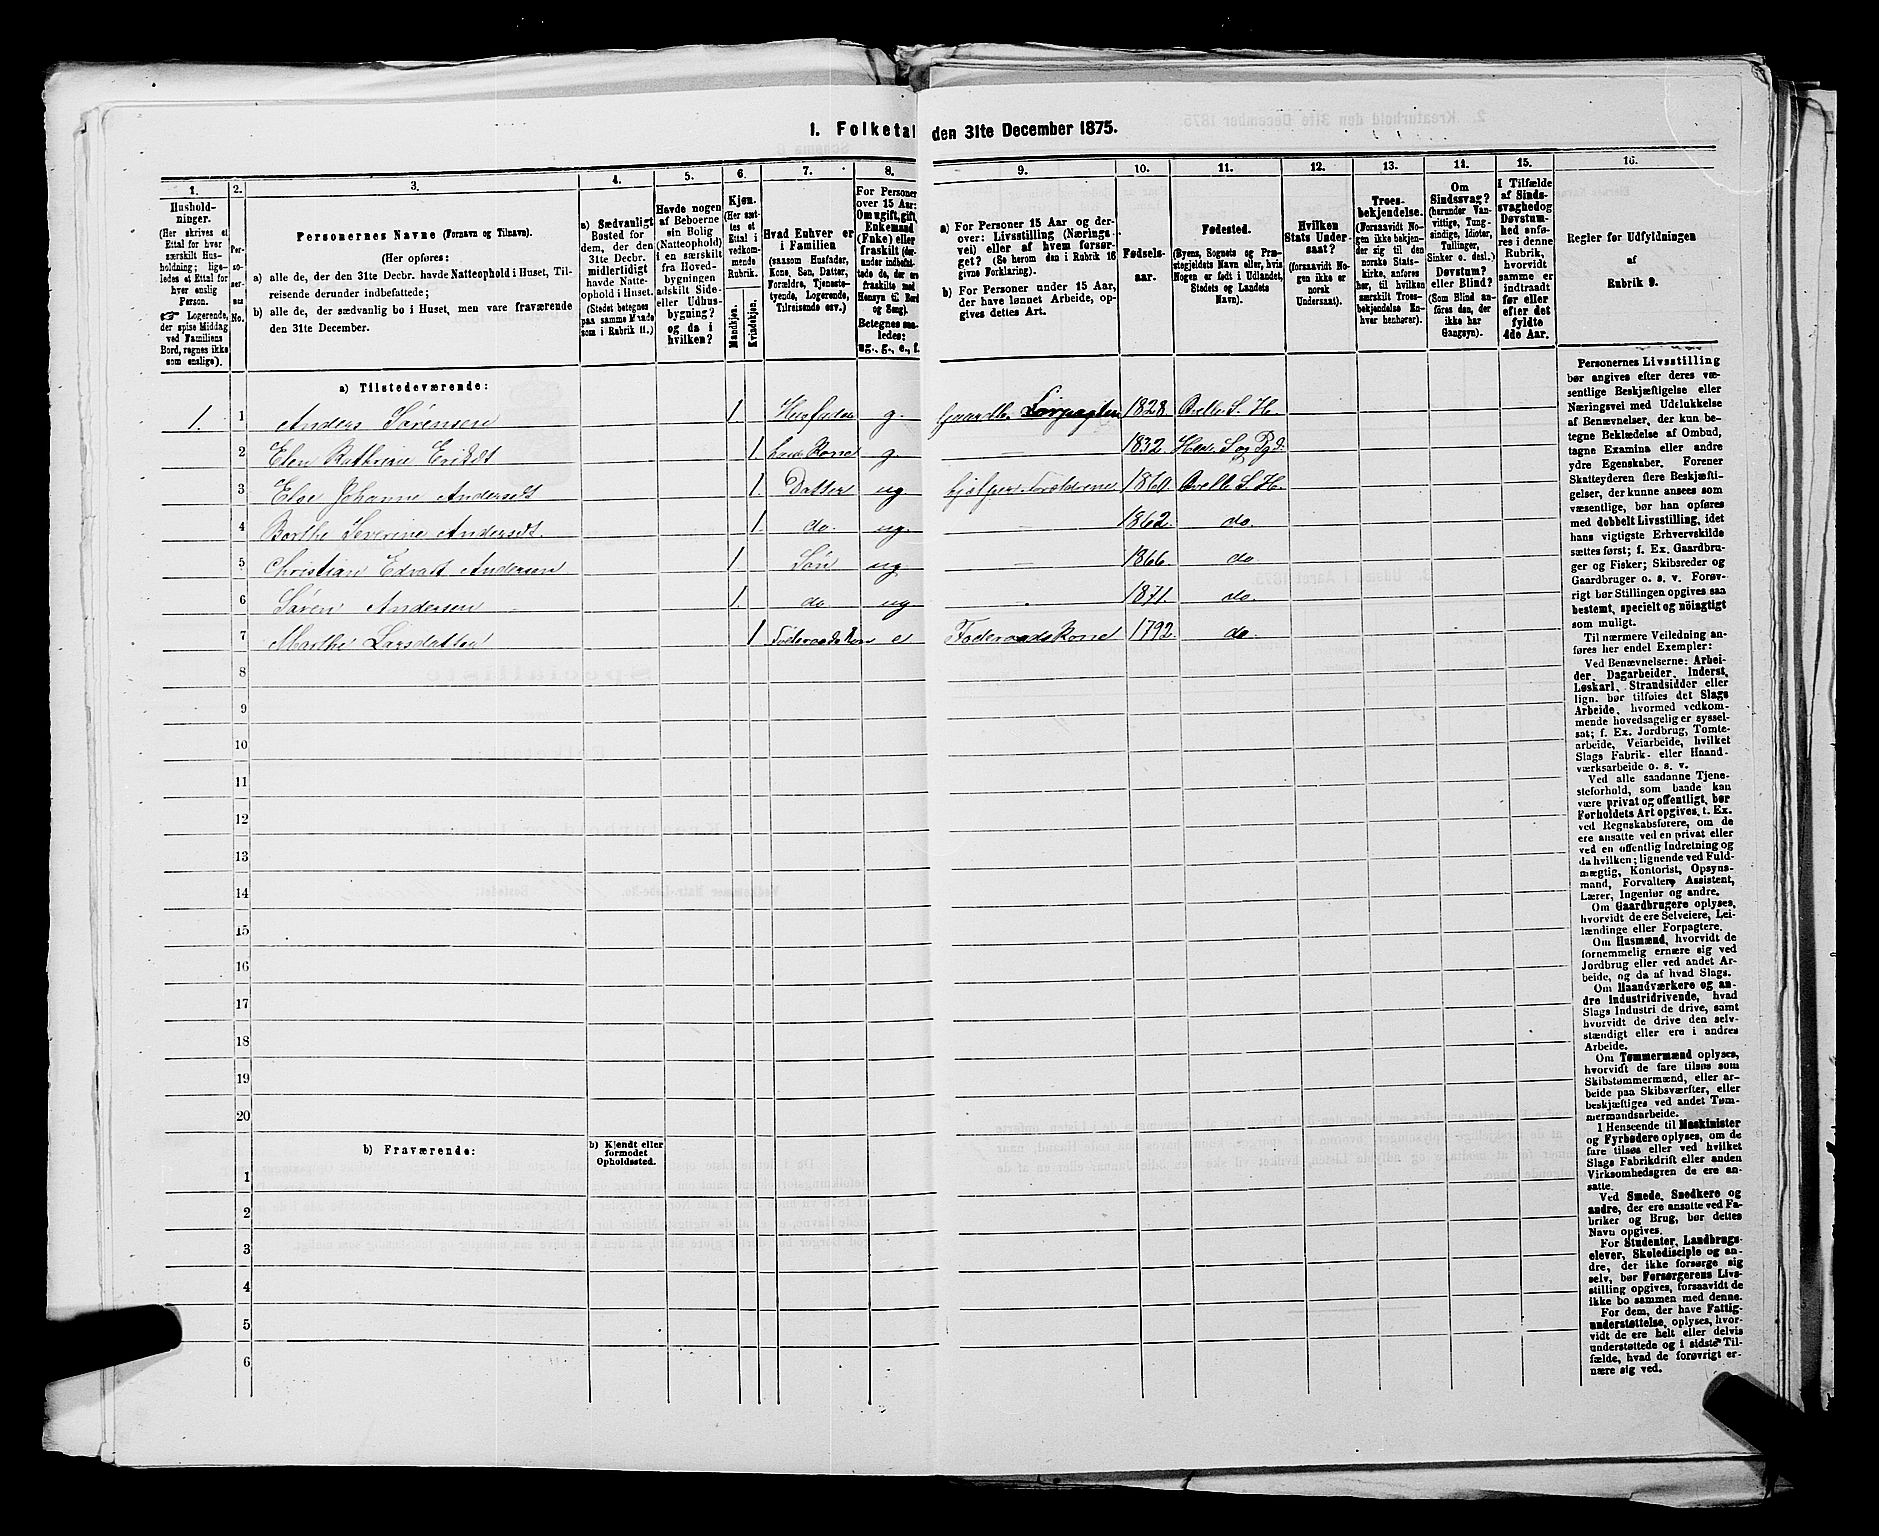 1. Folketal den 31te December 1875.
1. 2. 3. 4. 5. 6. 7. 8. 9. 10. 11. 12. 13. 14. 15. 16.
Hushold-
ninger.
(Her skrives et
Ettal for hver
særskilt Hus-
holdning; lige-
ledes et Ettal for
hver enslig
Person.
☞ Logerende,
der spise Middag
ved Familiens
Bord, regnes ikke
som enslige).
Per-
so-
ner-
nes
No.
Personernes Navne (Fornavn og Tilnavn).
(Her opføres:
a) alle de, der den 31te Decbr. havde Natteophold i Huset, Til-
reisende derunder indbefattede;
b) alle de, der sædvanlig bo i Huset, men vare fraværende
den 31te December.
a) Sædvanligt
Bosted for
dem, der den
31te Decbr.
midlertidigt
havde Natte-
ophold i Huset.
(Stedet betegnes
paa samme Maade
som i Rubrik 11.)
Havde nogen
af Beboerne
sin Bolig
(Natteophold)
i en særskilt
fra Hoved-
bygningen
adskilt Side-
eller Udhus-
bygning?
og da i
hvilken?
Kjøn.
(Her sæt-
tes et
Ettal i
vedkom-
mende
Rubrik.
Mandkjøn.
Kvindekjøn.
Hvad Enhver er
i Familien
(saasom Husfader,
Kone, Søn, Datter,
Forældre, Tjeneste-
tyende, Logerende,
Tilreisende osv.)
For Personer
over 15 Aar:
Om ugift, gift,
Enkemand
(Enke) eller
fraskilt (der-
under indbefat-
tede de, der ere
fraskilte med
Hensyn til Bord
og Seng).
Betegnes saa-
ledes:
ug., g., e., f.
a) For Personer 15 Aar og der-
over: Livsstilling (Nærings-
vei) eller af hvem forsør-
get? (Se herom den i Rubrik 16
givne Forklaring).
b) For Personer under 15 Aar,
der have lønnet Arbeide, op-
gives dettes Art.
Fødsels-
aar.
Fødested.
(Byens, Sognets og Præ-
stegjeldets Navn eller, hvis
Nogen er født i Udlandet,
Stedets og Landets
Navn).
Hvilken
Stats Under-
saat?
(forsaavidt No-
gen ikke er
norsk
Undersaat).
Troes-
bekjendelse.
(Forsaavidt No-
gen ikke bekjen-
der sig til den
norske Stats-
kirke, anføres
her, til hvilken
særskilt Troes-
bekjendelse En-
hver henhører).
Om
Sindssvag?
(herunder Van-
vittige, Tung-
sindige, Idioter,
Tullinger,
Sinker o. desl.)
Døvstum?
eller Blind?
(Som Blind an-
føres den, der
ikke har
Gangsyn).
I Tilfælde
af Sinds-
svaghed og
Døvstum-
hed anfø-
res i denne
Rubrik,
hvorvidt
samme er
indtraadt
før eller
efter det
fyldte
4de Aar.
Regler for Udfyldningen
af
Rubrik 9.
a) Tilstedeværende:
1. 1 Anders Sørensen 1. Husfader g. Forpagter 1828. S. H.
2 Elen Kathrine 1. hans Kone g. — 1832. S og Pgd.
3 Else Johanne Andersdt 1. Datter ug hjelper Forældrene 1860 S. H.
4 Berthe Severine Andersdt. 1. do. ug. — 1862. do.
5 Christian Edvart Andersen 1 Søn ug — 1866. do
6 Søren Andersen 1. do ug. 1871. do.
7 Marthe Larsdatter 1 Føderaadskone e Føderaadskone 1792. do.
8
9
10
11
12
13
14
15
16
17
18
19
20
b) Fraværende:
b) Kjendt eller
formodet
Opholdssted.
1
2
3
4
5
6
Personernes Livsstilling
bør angives efter deres væ-
sentlige Beskjæftigelse eller
Næringsvei med Udelukkelse
af Benævnelser, der kun be-
tegne Beklædelse af Ombud,
tagne Examina eller andre
ydre Egenskaber. Forener
Skatteyderen flere Beskjæfti-
gelser, der kunne ansees som
væsentlige, bør han opføres
med dobbelt Livsstilling, idet
hans vigtigste Erhvervskilde
sættes først; f. Ex. Gaardbru-
ger og Fisker; Skibsreder og
Gaardbruger o. s. v. Forøv-
rigt bør Stillingen opgives saa
bestemt, specielt og nøiagtigt
som muligt.
Til nærmere Veiledning an-
føres her endel Exempler:
Ved Benævnelserne: Arbei-
der, Dagarbeider, Inderst,
Løskarl, Strandsidder eller
lign. bør tilføies det Slags
Arbeide, hvormed vedkom-
mende hovedsagelig er syssel-
sat; f. Ex. Jordbrug, Tomte-
arbeide, Veiarbeide, hvilket
Slags Fabrik- eller Haand-
værksarbeide o. s. v.
Ved alle saadanne Tjene-
steforhold, som baade kan
være privat og offentligt, bør
Forholdets Art opgives, f. Ex.
ved Regnskabsførere, om de
ere ansatte ved en privat eller
ved en offentlig Indretning og
da hvilken; lignende ved Fuld-
mægtig, Kontorist, Opsyns-
mand, Forvalter, Assistent,
Lærer, Ingeniør og andre.
Om Gaardbrugere oplyses,
hvorvidt de ere Selveiere, Lei-
lændinge eller Forpagtere.
Om Husmænd, hvorvidt de
fornemmelig ernære sig ved
Jordbrug eller ved andet Ar-
beide, og da af hvad Slags.
Om Haandværkere og an-
dre Industridrivende, hvad
Slags Industri de drive, samt
hvorvidt de drive den selv-
stændigt eller ere i andres
Arbeide.
Om Tømmermænd oplyses,
hvorvidt de fare tilsøs som
Skibstømmermænd, eller ar-
beide paa Skibsværfter, eller
beskjæftiges ved andet Tøm-
mermandsarbeide.
I Henseende til Maskinister
og Fyrbødere oplyses, om de
fare tilsøs eller ved hvilket
Slags Fabrikdrift eller anden
Virksomhedsgren de ere an-
satte.
Ved Smede, Snedkere og
andre, der ere ansatte ved Fa-
briker og Brug, bør dettes
Navn opgives.
For Studenter, Landbrugs-
elever, Skoledisciple og an-
dre, der ikke forsørge sig
selv, bør Forsørgerens Livs-
stilling opgives, forsaavidt de
ikke bo sammen med denne.
For dem, der have Fattig-
understøttelse, oplyses, hvor-
vidt de ere helt eller delvis
understøttede og i sidste Til-
fælde, hvad de forøvrigt er-
nære sig ved.